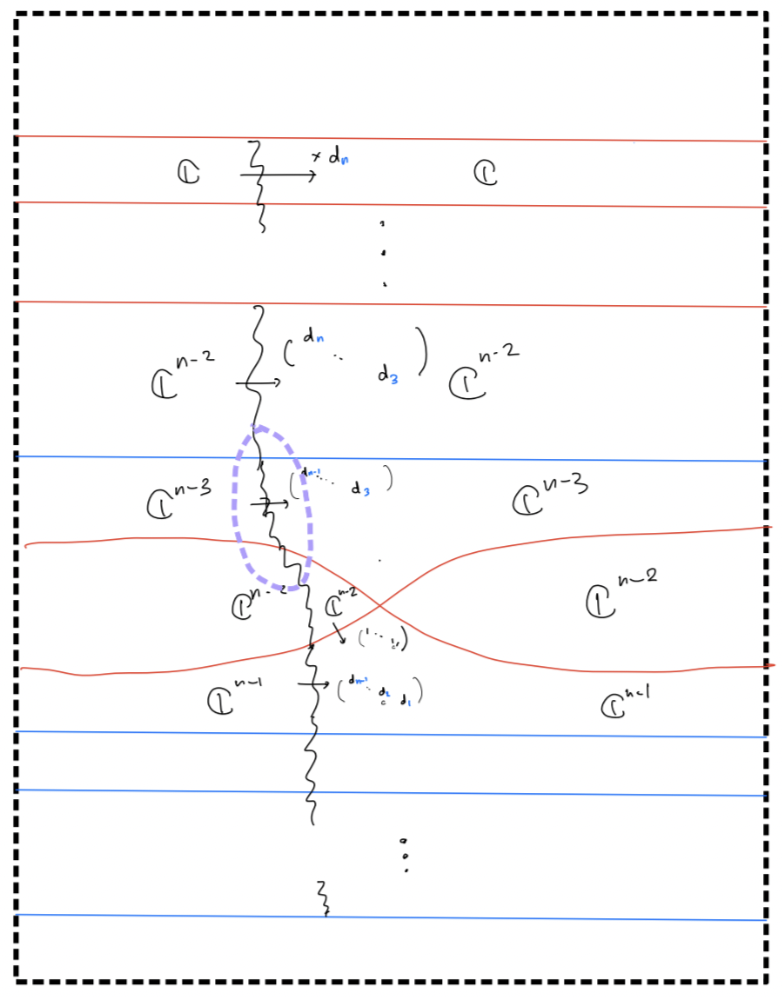 ℂ × dₙ ℂ
⋮
ℂⁿ⁻² ( dₙ ⋱ d₃ ) ℂⁿ⁻²
ℂⁿ⁻³ ( dₙ₋₁ ⋱ d₃ ) ℂⁿ⁻³
ℂⁿ⁻² ℂⁿ⁻² ℂⁿ⁻²
ℂⁿ⁻¹ ( dₙ₋₁ ⋱ d₂ d₁ ) ℂⁿ⁻¹
⋮